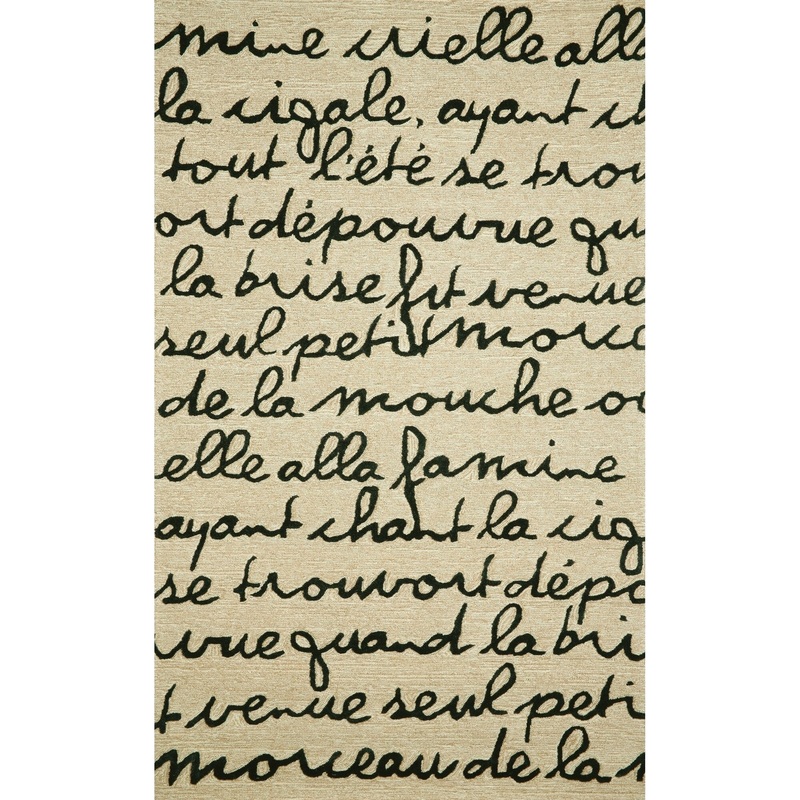 mine crielle alla
la cigale, ayant ch
tout l'été se trou
ort dépouvue qu
la brise fit venue
seul petit morce
de la mouche ou
elle alla famine
ayant chant la cig
se trouvort dépo
uvue quand la bri
t venue seul peti
morceau de la m